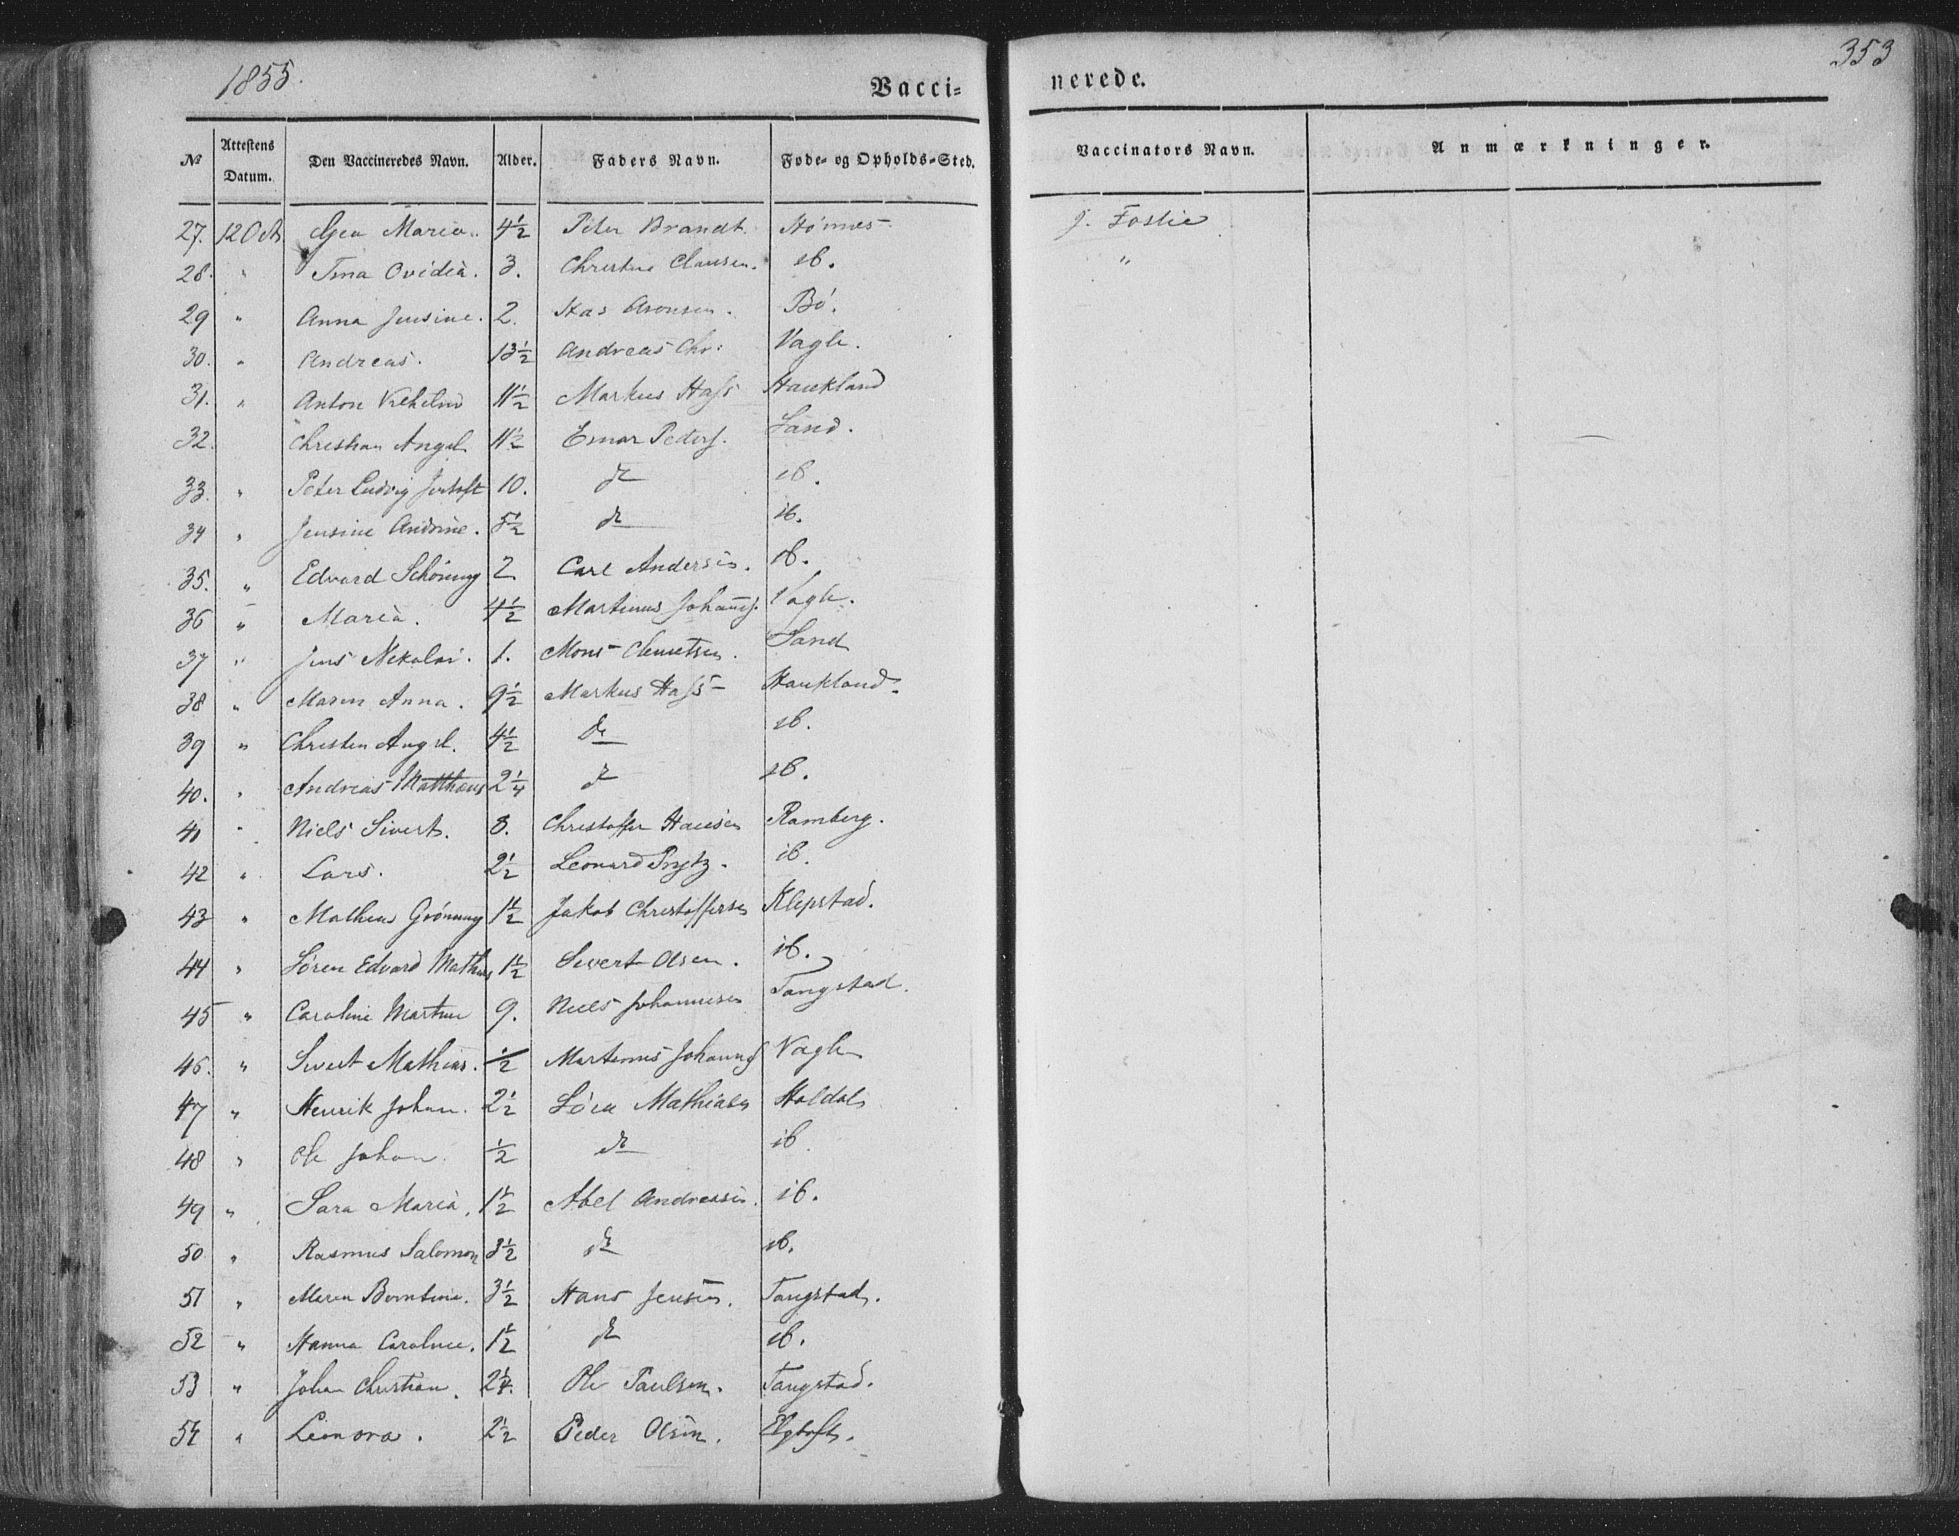 1855.
Vacci= nerede.
353
№ Attestens Datum. Den Vaccineredes Navn. Alder. Faders Navn. Føde- og Opholds-Sted. Vaccinators Navn. Anmærkninger.
27. 12 Oct. Maria. 4½ Peter Brandt. J. Foslie
28. " Tina Ovidia. 3. Clausen. ib. "
29 " Anna Jensine. 2. Has Aronsen. Bö.
30. " Andreas. 13½ Andreas Chr: Vagle.
31. " Anton Vilhelm 11½ Markus Hass Haukland
32. Christian Angel 11½ Einar Peders. Sand.
33. " Peter Ludvig 10. do ib.
34 " Jensine Andrine. 5½ do ib.
35. " Edvard Schöning 2 Carl Andersen. ib.
36 " Maria. 4½ Martinus Johans. Vagle.
37 " Jens Nikolai. 1. Mons Clemetsen. Sand
38 " Maren Anna. 9½ Markus Hass Haukland.
39 " Christen Angel. 4½ do ib.
40. " Andreas Matthæus 2¼ do ib.
41 " Niels Sivert. 8. Christoffer Hansen Ramberg.
42 " Lars. 2½ Leonard Prytz. ib.
43 " Mathias Grönning 1½ Jakob Christoffersen Klepstad.
44 " Sören Edvard Mathias 1½ Sivert Olsen. ib.
45 " Caroline Martine 9. Niels Johannesen Tangstad.
46. " Sivert Mathias. ½ Martinus Johanns Vagle
47 " Henrik Johan. 2½ Sören Mathiasen Holdal
48 " Ole Johan. ½ do ib
49 " Sara Maria. 1½ Abel Andreasen. ib.
50 " Rasmus Salomon 3½ do ib.
51 " Maren Berntine. 3½ Hans Jensen. Tangstad.
52 " Hanna Caroline. 1½ do ib.
53 " Johan Christian. 2¼. Ole Paulsen. Tangstad.
54 " Leonora. 2½ Peder Olsen. Elgtoft.